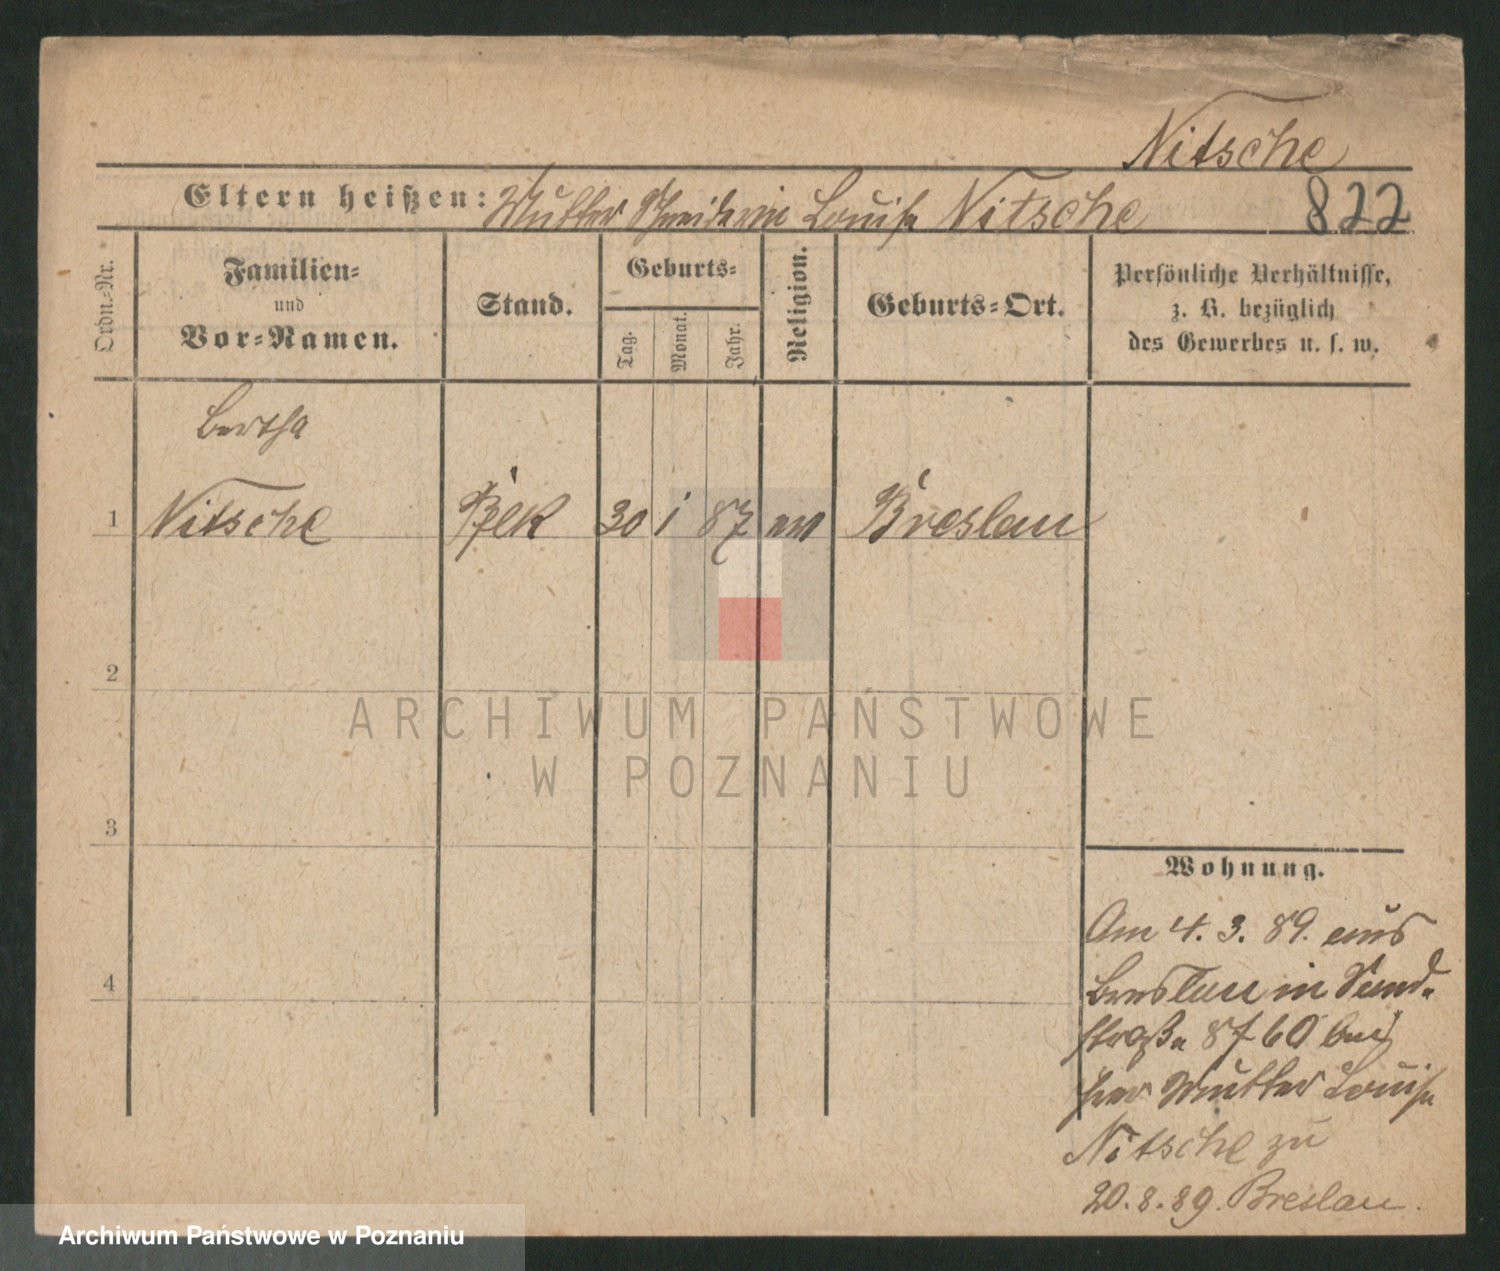 Nitsche
Eltern heißen: Mutter Schneiderin Louise Nitsche 822
Ordn.-Nr.
Familien-
und
Vor-Namen.
Stand.
Geburts-
Tag.
Monat.
Jahr.
Religion.
Geburts-Ort.
Persönliche Verhältnisse,
z. B. bezüglich
des Gewerbes u. s. w.
Bertha
1 Nitsche 30 1 87 ev Breslau
2
3
4
Wohnung.
Am 4. 3. 89. aus
Breslau in Sand-
straße 8 bei
Mutter Louise
Nitsche zu
20. 8. 89. Breslau.
ARCHIWUM PAŃSTWOWE
W POZNANIU
Archiwum Państwowe w Poznaniu